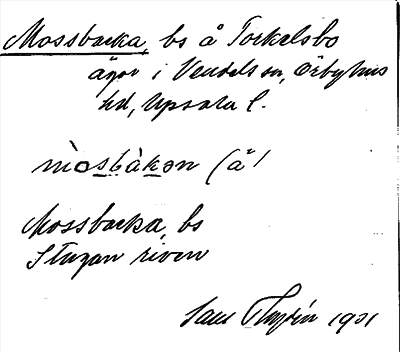 Mossbacka, bs å Torkelsbo
ägor i Vendels sn, Örbyhus
hd, Upsala l.
mòsbàkɑn (å)
Mossbacka, bs
Stugan riven
1901